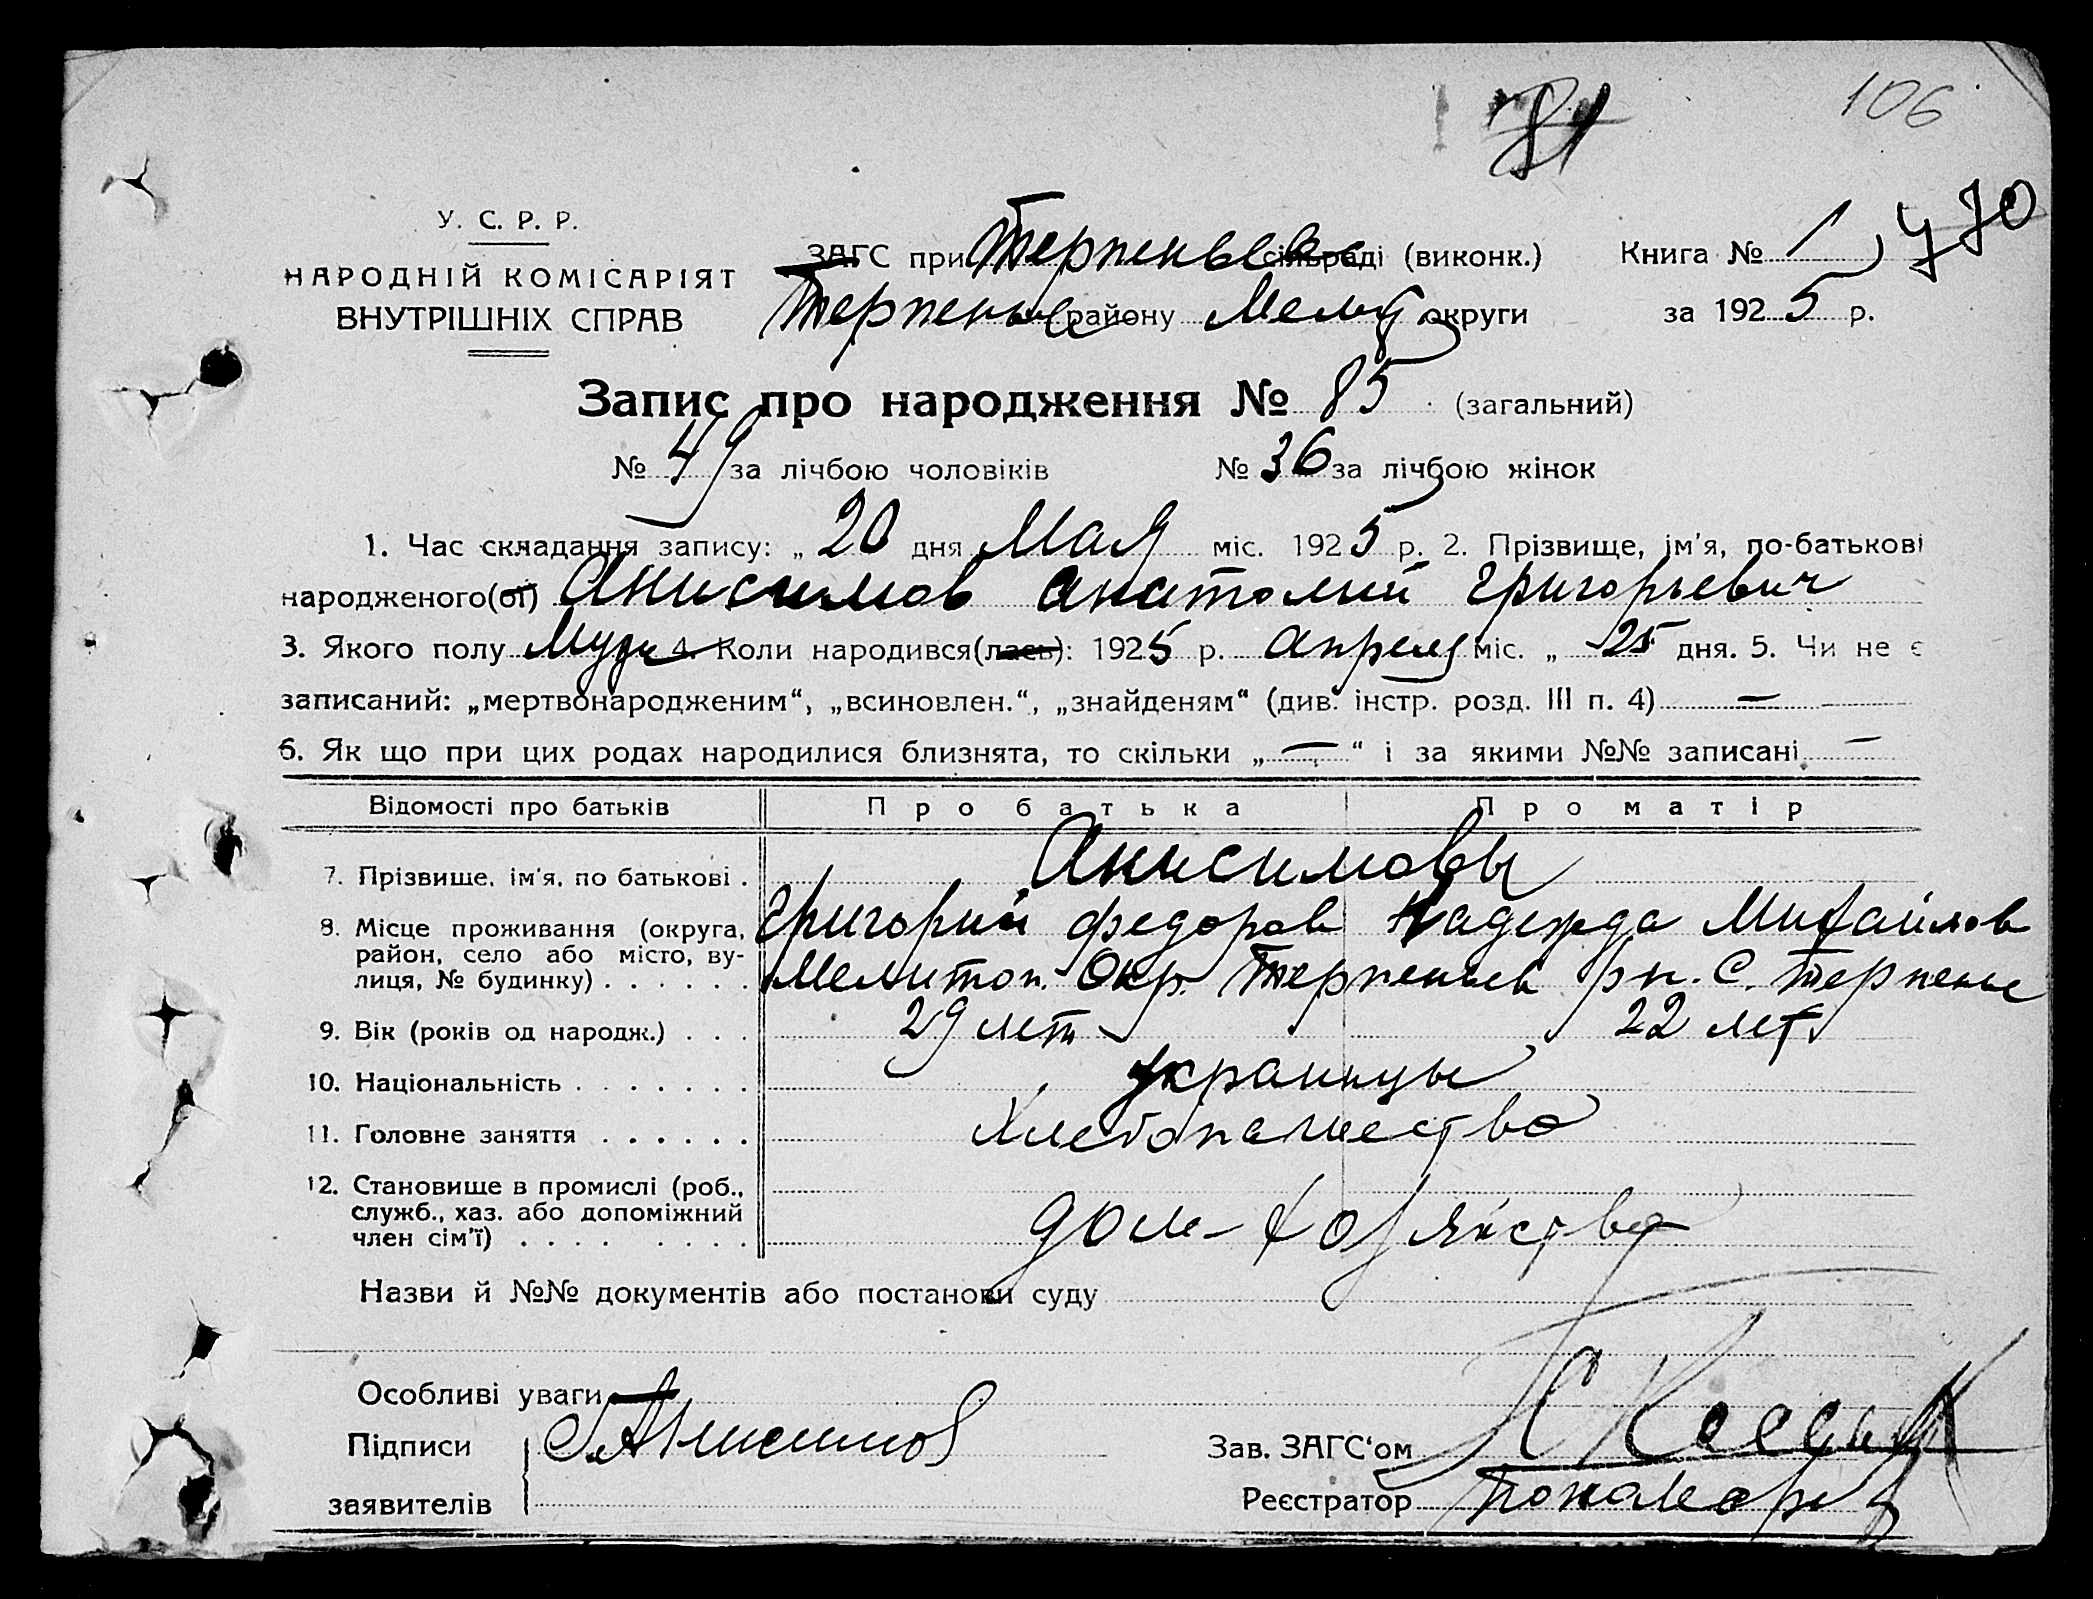 106
81
У. С. Р. Р.
НАРОДНІЙ КОМІСАРІЯТ
ВНУТРІШНІХ СПРАВ
ЗАГС при Терпеньев сільраді (виконк.) Книга № 1
Терпеньев району Мелит округи за 1925 р.
Запис про народження № 85 (загальний)
№ 49 за лічбою чоловіків № 36 за лічбою жінок
1. Час складання запису: „ 20 дня Мая міс. 1925 р. 2. Прізвище, ім'я, по-батькові
народженого(ої) Анисимов Анатолий Григорьевич
3. Якого полу Муж 4. Коли народився(лась): 1925 р. Апреля міс. „ 25 дня. 5. Чи не є
записаний: „мертвонародженим“, „всиновлен.“, „знайденям“ (див. інстр. розд. III п. 4) —
6. Як що при цих родах народилися близнята, то скільки „ — “ і за якими №№ записані —
Відомості про батьків Про батька Про матір
7. Прізвище, ім'я, по батькові . Анисимовы
Григорий Федоров Надежда Михайлов
8. Місце проживання (округа,
район, село або місто, ву-
лиця, № будинку) . . . . . . Мелитоп. Окр. Терпеньев рн. С. Терпенье
9. Вік (років од народж.) . . . 29 лет 22 лет
10. Національність . . . . . . . Украинцы
11. Головне заняття . . . . . . Хлебопашество
12. Становище в промислі (роб.,
служб., хаз. або допоміжний
член сім'ї) . . . . . . . . дом-хозяйство
Назви й №№ документів або постанови суду
Особливі уваги
Підписи Г. Анисимов
заявителів
Зав. ЗАГС'ом
Реєстратор Пономарев